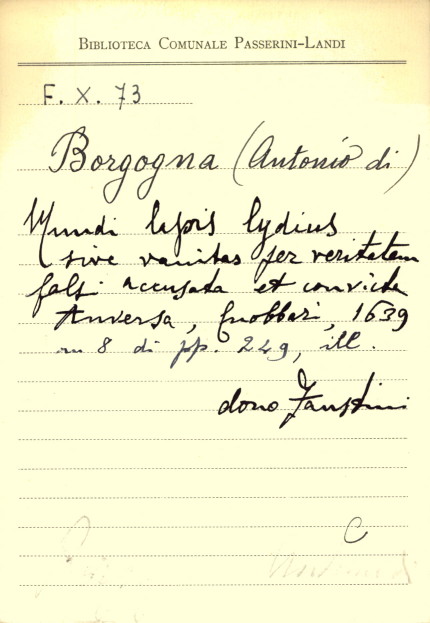 BIBLIOTECA COMUNALE PASSERINI-LANDI
F. X. 73
Borgogna (Antonio di)
Mundi lapis lydius
sive vanitas per veritatem
falsi accusata et convicta
Anversa, Cnobbari, 1639
in 8 di pp. 249, ill.
dono Faustini
C